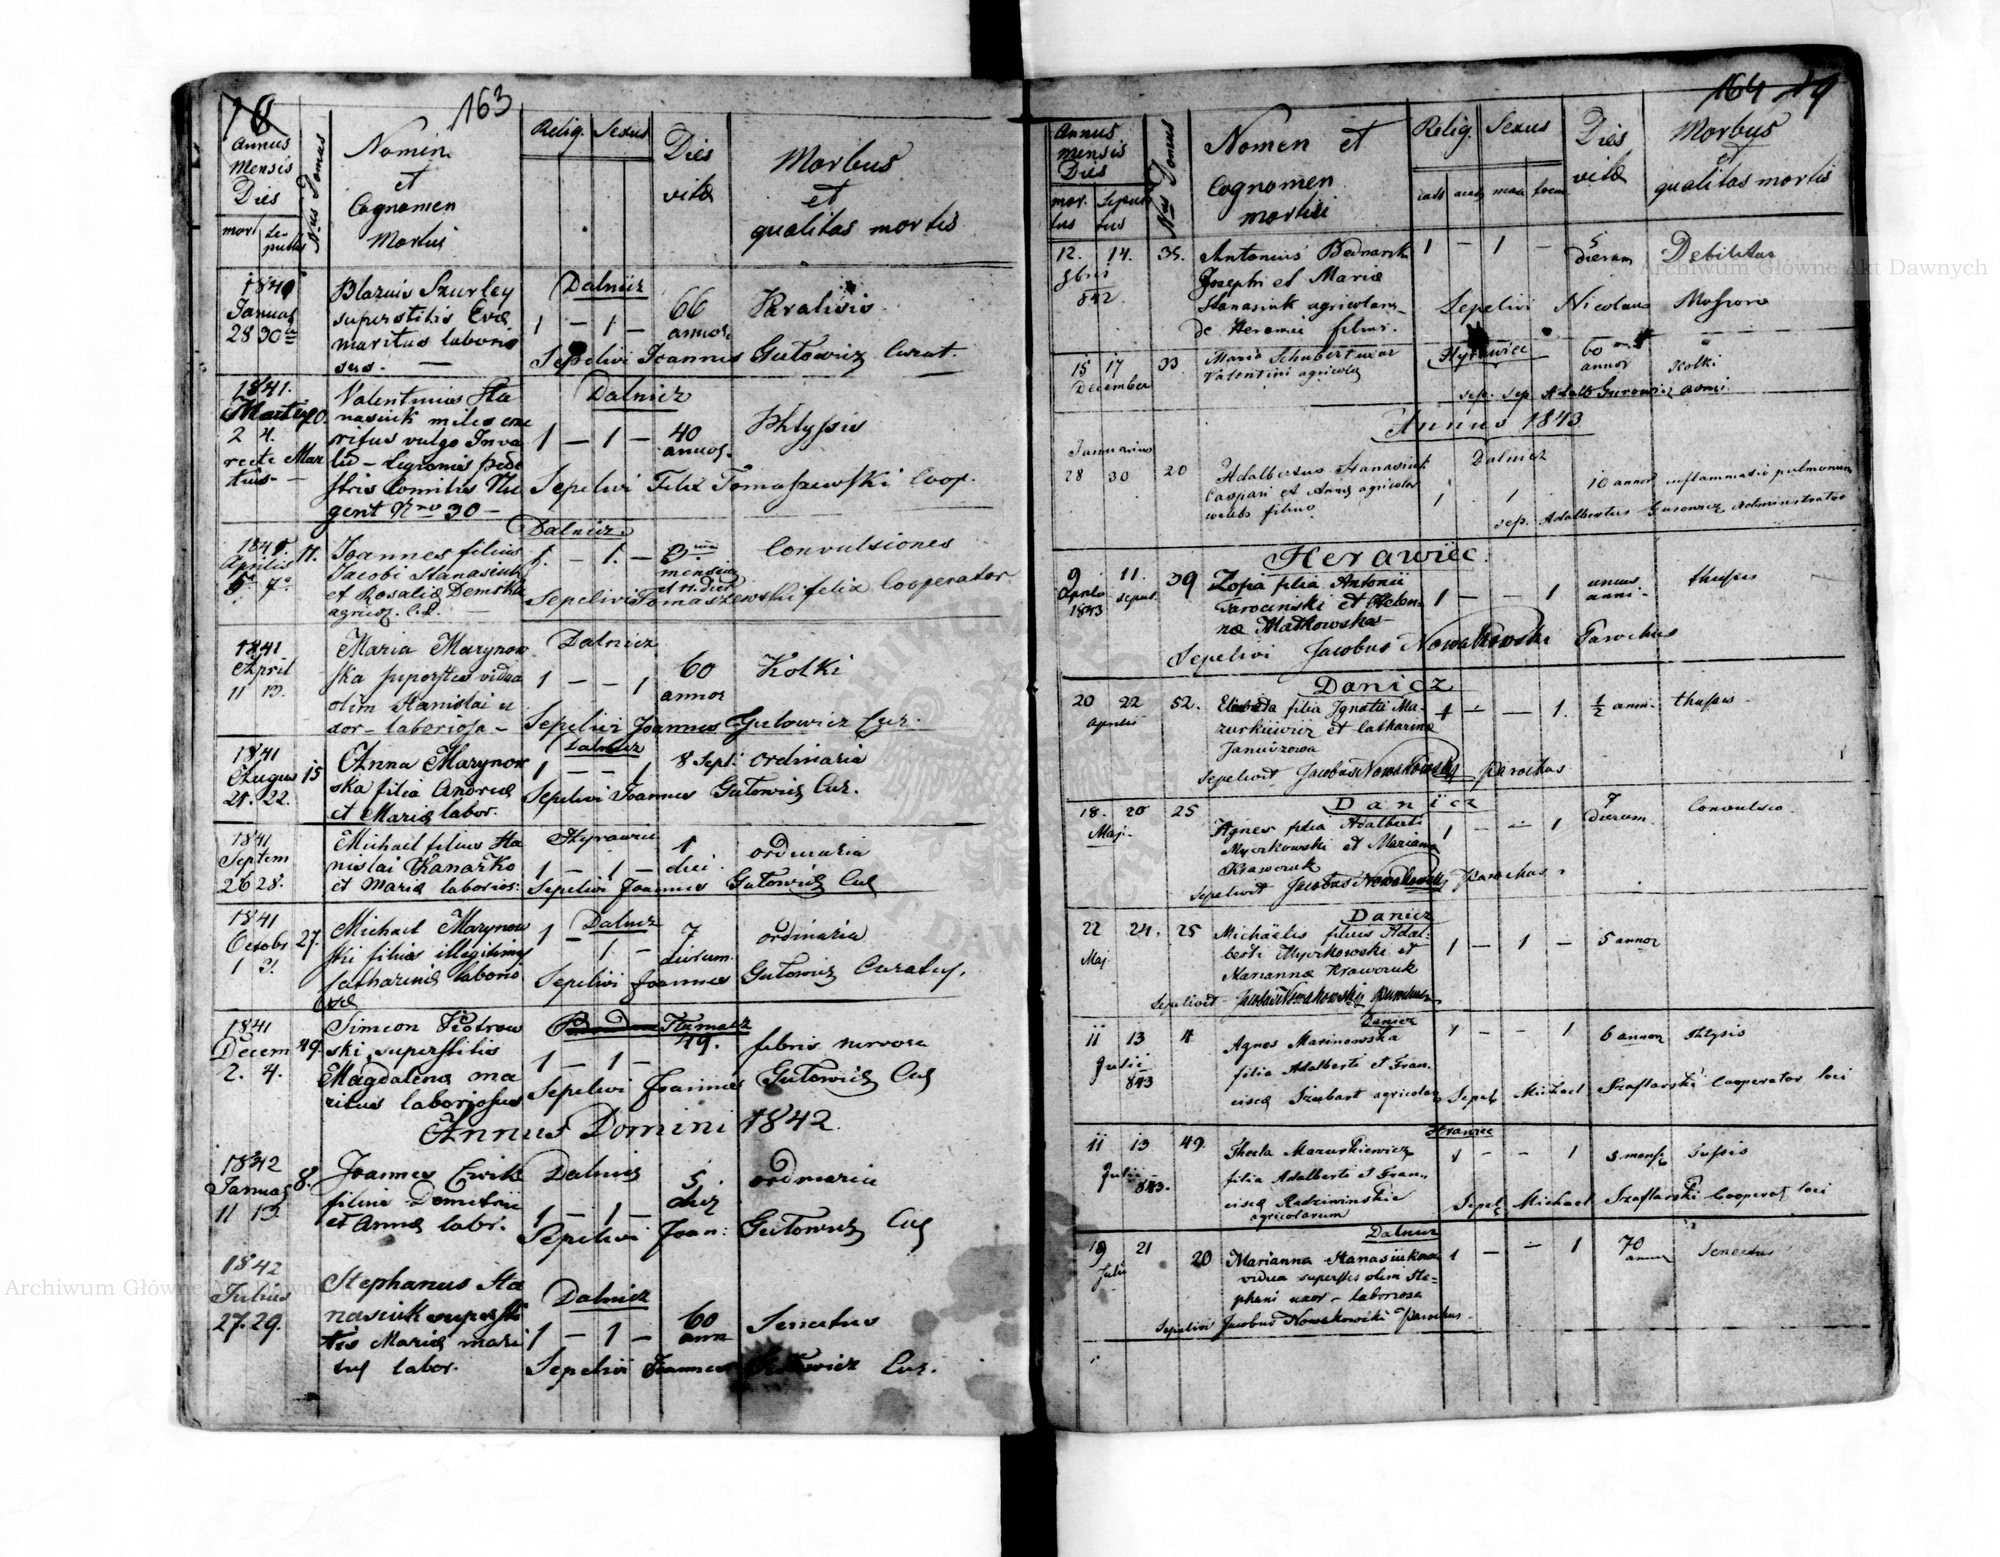 163
Annus
Mensis
Dies
Nrus Domus
Nomen
et
Cognomen
Mortui
Relig. Sexus
Dies
vitæ
Morbus
et
qualitas mortis
mor Se-
pultus
1840
Januar
28 30
Blazius Szurley
superstitis Evæ
maritus laborio
sus. —
Dalnicz
1 — 1 —
66
annor.
Paralisis
Sepelivi Joannes Gutowicz Curat.
1841.
Martius 20.
2 4.
recte Mar
tius —
Valentinus Sta
nasiuk miles eme
ritus vulgo Inva
lid — Legionis pede
stris Comitis Nu
gent Nro 30 —
Dalnicz
1 — 1 —
40
annor.
Phtysis
Sepelivi Felix Tomaszewski Coop.
1841.
Aprilis 11.
5. 7.
Joannes filius
Jacobi Stanasiuk
et Rosaliæ Demska
agricol.
Dalnicz
1. — 1. —
mensium
Convulsiones
Sepelivi Tomaszewski felix Cooperator
1841
April
11 13.
Maria Marynow
ska superstes vidua
olim Stanislai u
xor — laboriosa —
Dalnicz
1 — — 1
60
annor
Kolki
Sepelivi Joannes Gutowicz Cur.
1841
Augus 15
21. 22.
Anna Marynow
ska filia Andreæ
et Mariæ labor.
Dalnicz
1 — — 1
8 Sept. ordinaria
Sepelivi Joannes Gutowicz Cur.
1841
Septem
26 28.
Michael filius Sta
nislai Kanarko
et Mariæ laborios:
Styrawice
1 — 1 —
1
diei
ordinaria
Sepelivi Joannes Gutowicz Cur
1841
Octobr 27.
1 3.
Michael Marynow
ski filius illegitimus
Catharinæ laborio
sæ
Dalnicz
1 — 1 —
7
dierum
ordinaria
Sepelivi Joannes Gutowicz Curatus.
1841
Decem 49.
2. 4.
Simeon Piotrow
ski superstitis
Magdalenæ ma
ritus laboriosus
Tłumacz
1 — 1 —
49.
febris nervosa
Sepelivi Joannes Gutowicz Cur
Annus Domini 1842
1842
Januar 8.
11 13.
Joannes Cwik
filius Demetrii
et Annæ labor.
Dalnicz
1 — 1 —
5.
dies
ordinaria
Sepelivi Joan: Gutowicz Cur
1842
Julius
27. 29.
Stephanus Sta
nasiuk supersti
tis Mariæ mari
tus labor.
Dalnicz
1 — 1 —
60
anno
Senectus
Sepelivi Joannes Gutowicz Cur.
164
Annus
mensis
Dies
Nrus Domus
Nomen et
Cognomen
mortui
Relig. Sexus
Dies
vitæ
Morbus
et
qualitas mortis
mor-
tus
Sepul
tus
cath aut mas foem
12. 14. 35.
9bris
842.
Antonius Bednarek
Josephi et Mariæ
Stanasiuk agricolarum
de Herawiec filius.
1 — 1 —
5
dierum
Debilitas
Sepelivi Nicolaus
15 17 33.
December
Maria Schubert uxor
Valentini agricolæ
Hyrawiec
60
annor
Kolki
sep. Adalb Gurowicz admi.
Annus 1843
Januarius
28 30 20
Adalbertus Stanasiuk
Caspari et Annæ agricolor
filius
Dalnicz
1 1
10 annor inflammatio pulmonum
sep. Adalbertus Gurowicz Administrator
Herawiec.
9 11. 39
Aprilis sepult.
1843
Zofia filia Antonii
Tarocinski et Helen-
næ Malkowska
1 — — 1
unius
anni —
thussis
Sepelivi Jacobus Nowakowski Parochus
Danicz
20 22 52.
Aprilis
filia Ignatii Ma-
zurkiewicz et Catharinæ
Januszowa
1 — — 1.
½ anni — thussis —
Sepelivit Jacobus Nowakowski Parochus
Danicz
18. 20 25
Maj.
Agnes filia Adalberti
Myczkowski et Marianna
Krawczuk
1 — — 1
7
dierum.
Convulsio.
Sepelivit Jacobus Nowakowski Parochus.
Danicz
22 24. 25
Maj
Michaëlis filius Adal-
berti Myczkowski et
Mariannæ Krawczuk
1 — 1 —
5 annor
Sepelivit Jacobus Nowakowski Parochus
Danicz
11 13 4
Julii
843
Agnes Marinowska
filia Adalberti et Fran-
ciscæ Szubart agricolar.
1 — — 1
6 annor Phtysis
Sepel. Michael Szaflarski Cooperator loci
Hrawiec
11 13 49.
Julii
843.
Thecla Mazurkiewicz
filia Adalberti et Fran-
ciscæ Radziwinskie
agricolarum
1 — — 1
3 mens. Tussis
Sepel. Michael Szaflarski Cooperat loci
Dalnicz
19 21 20
Julii
Marianna Stanasiukowa
vidua superstes olim Ste-
phani uxor — laboriosa
1 — — 1
70
annor
Senectus
Sepelivi Jacobus Nowakowski Parochus —
Archiwum Główne Akt Dawnych
Archiwum Główne Akt Dawnych